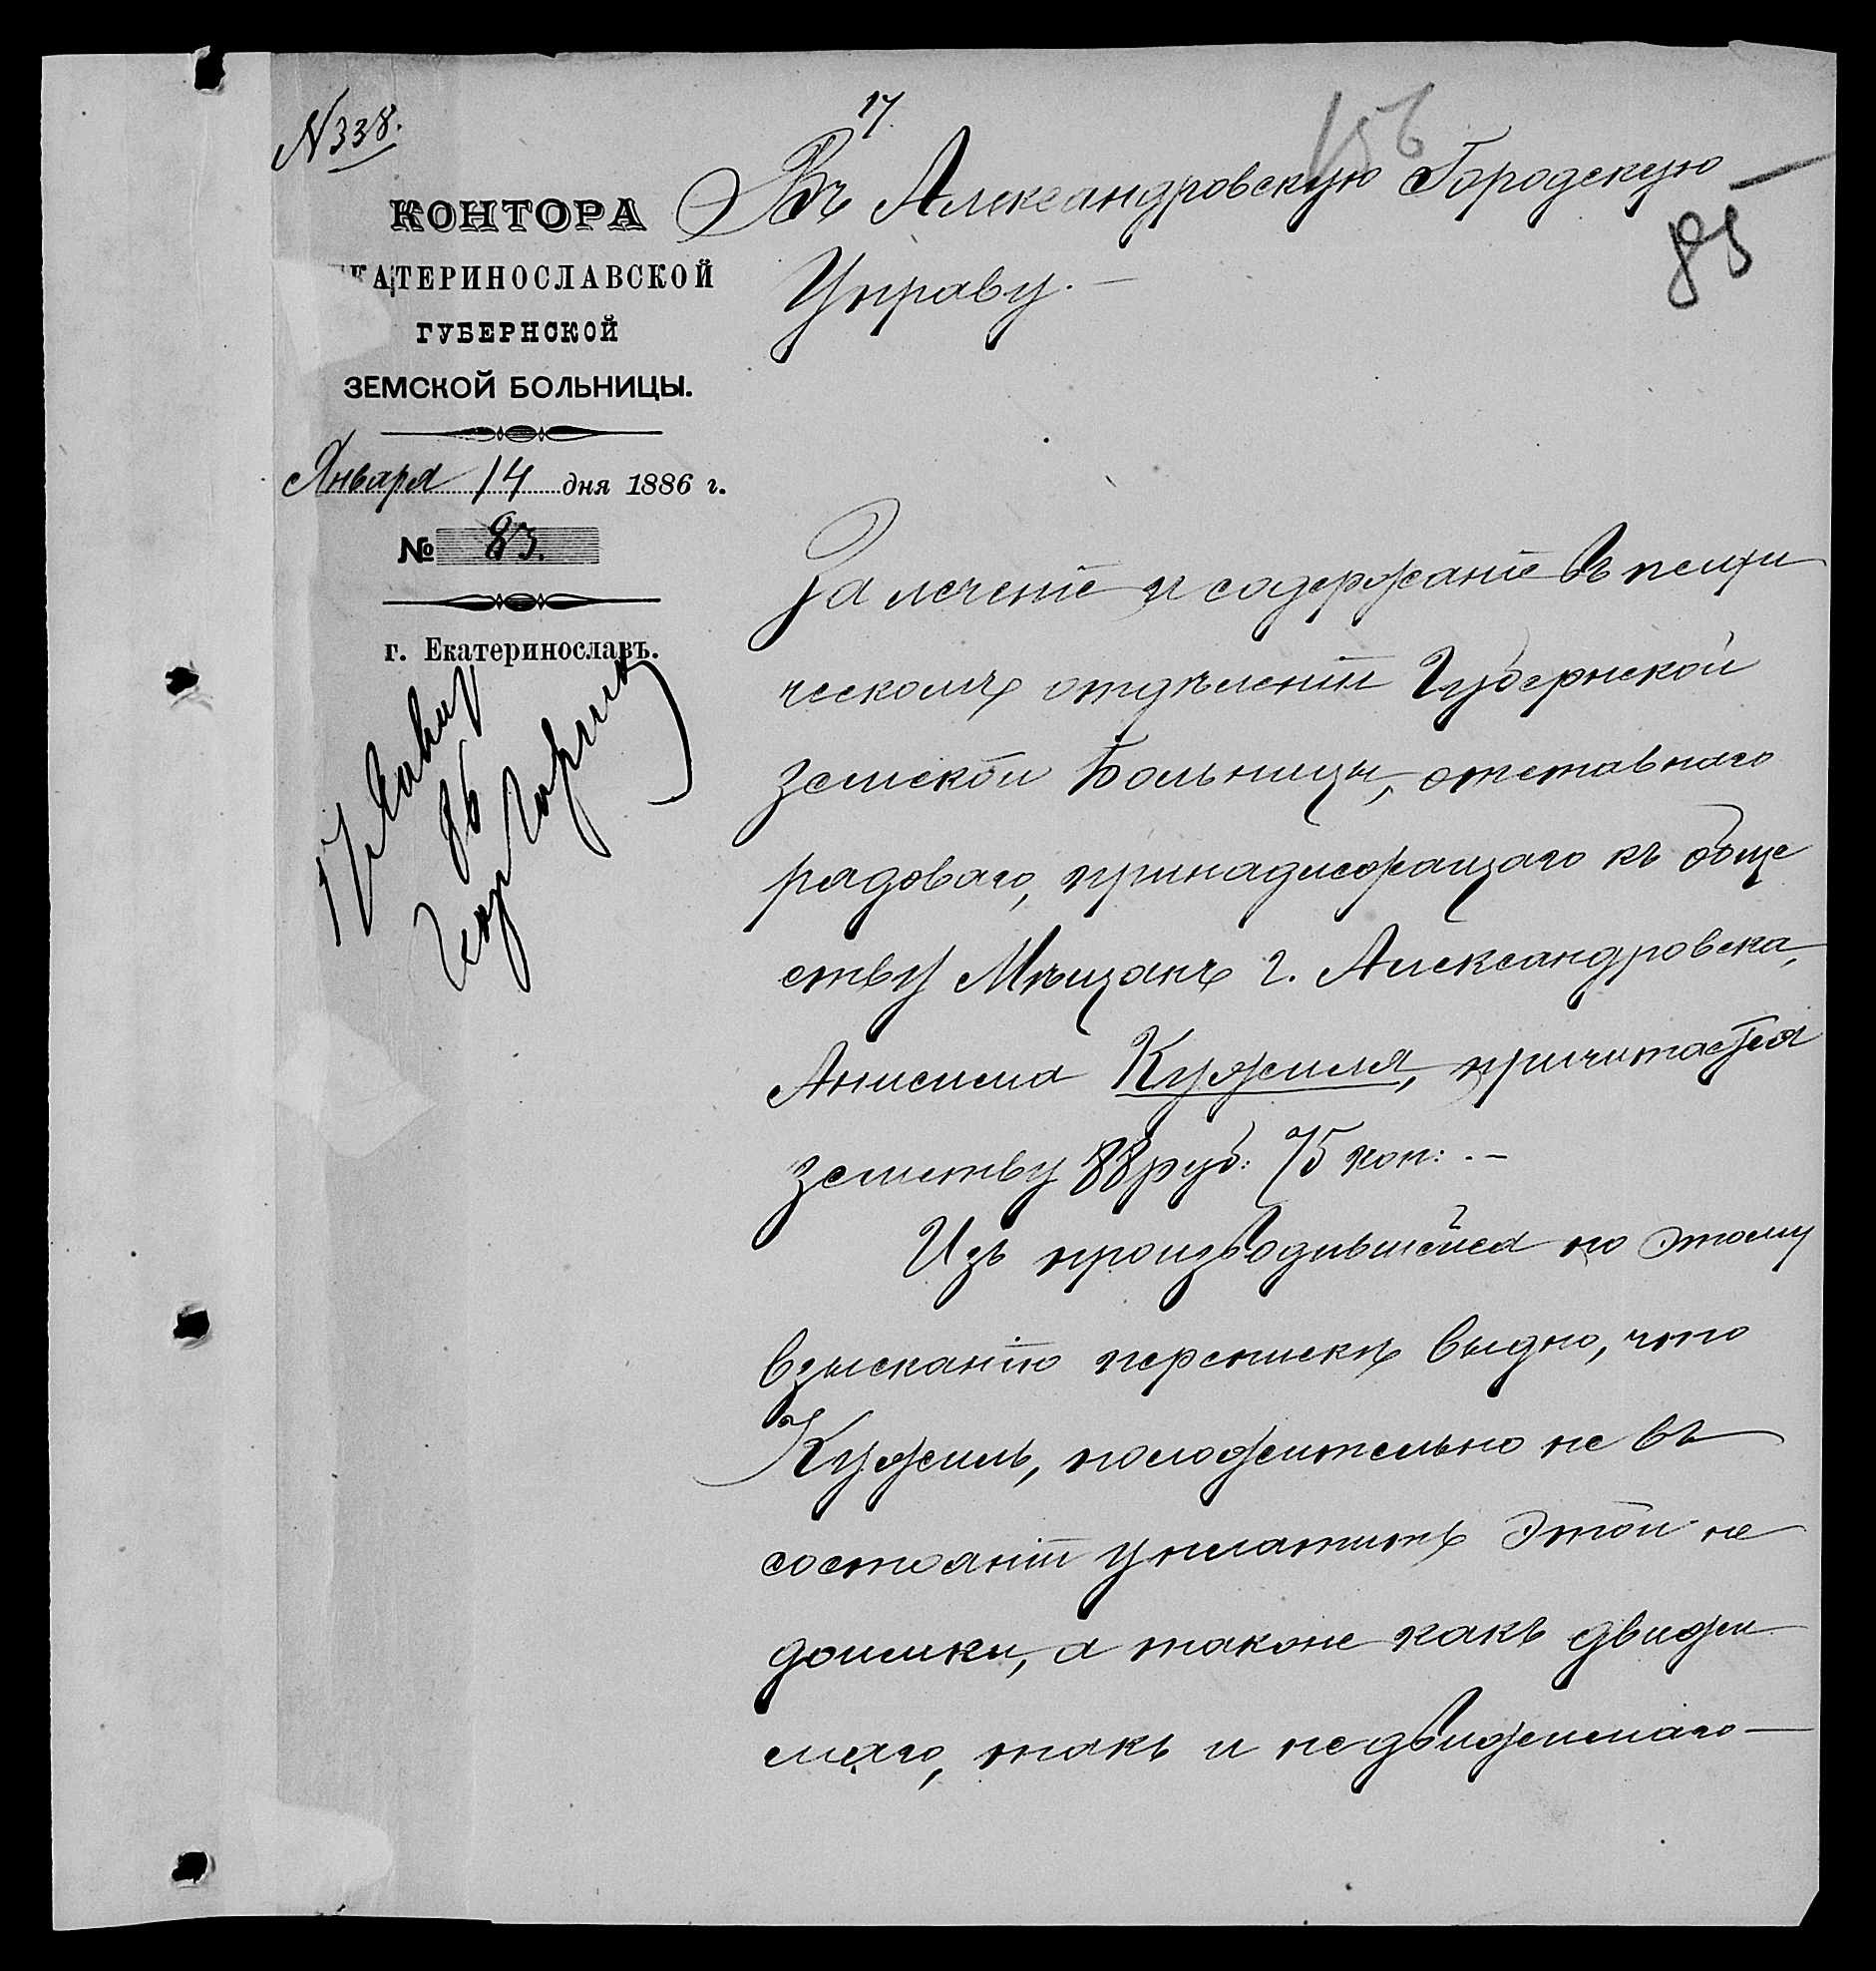 N 338.
17.
156
85
КОНТОРА
КАТЕРИНОСЛАВСКОЙ
ГУБЕРНСКОЙ
ЗЕМСКОЙ БОЛЬНИЦЫ.
Января 14 дня 1886 г.
№ 83.
г. Екатеринославъ.
17 Января
86
Въ Александровскую Городскую
Управу.–
За леченіе и содержаніе въ психи
ческомъ отдѣленіи Губернской
земской Больницы, отставнаго
рядоваго, принадлежащаго къ обще
ству Мѣщанъ г. Александровска,
Анисима Кужиля, причитается
земству 88 руб: 75 коп: . –
Изъ производившейся по этому
взысканію переписки видно, что
Кужиль, положительно не въ
состояніи уплатить этой не
доимки, а также какъ движи
маго, такъ и недвижимаго